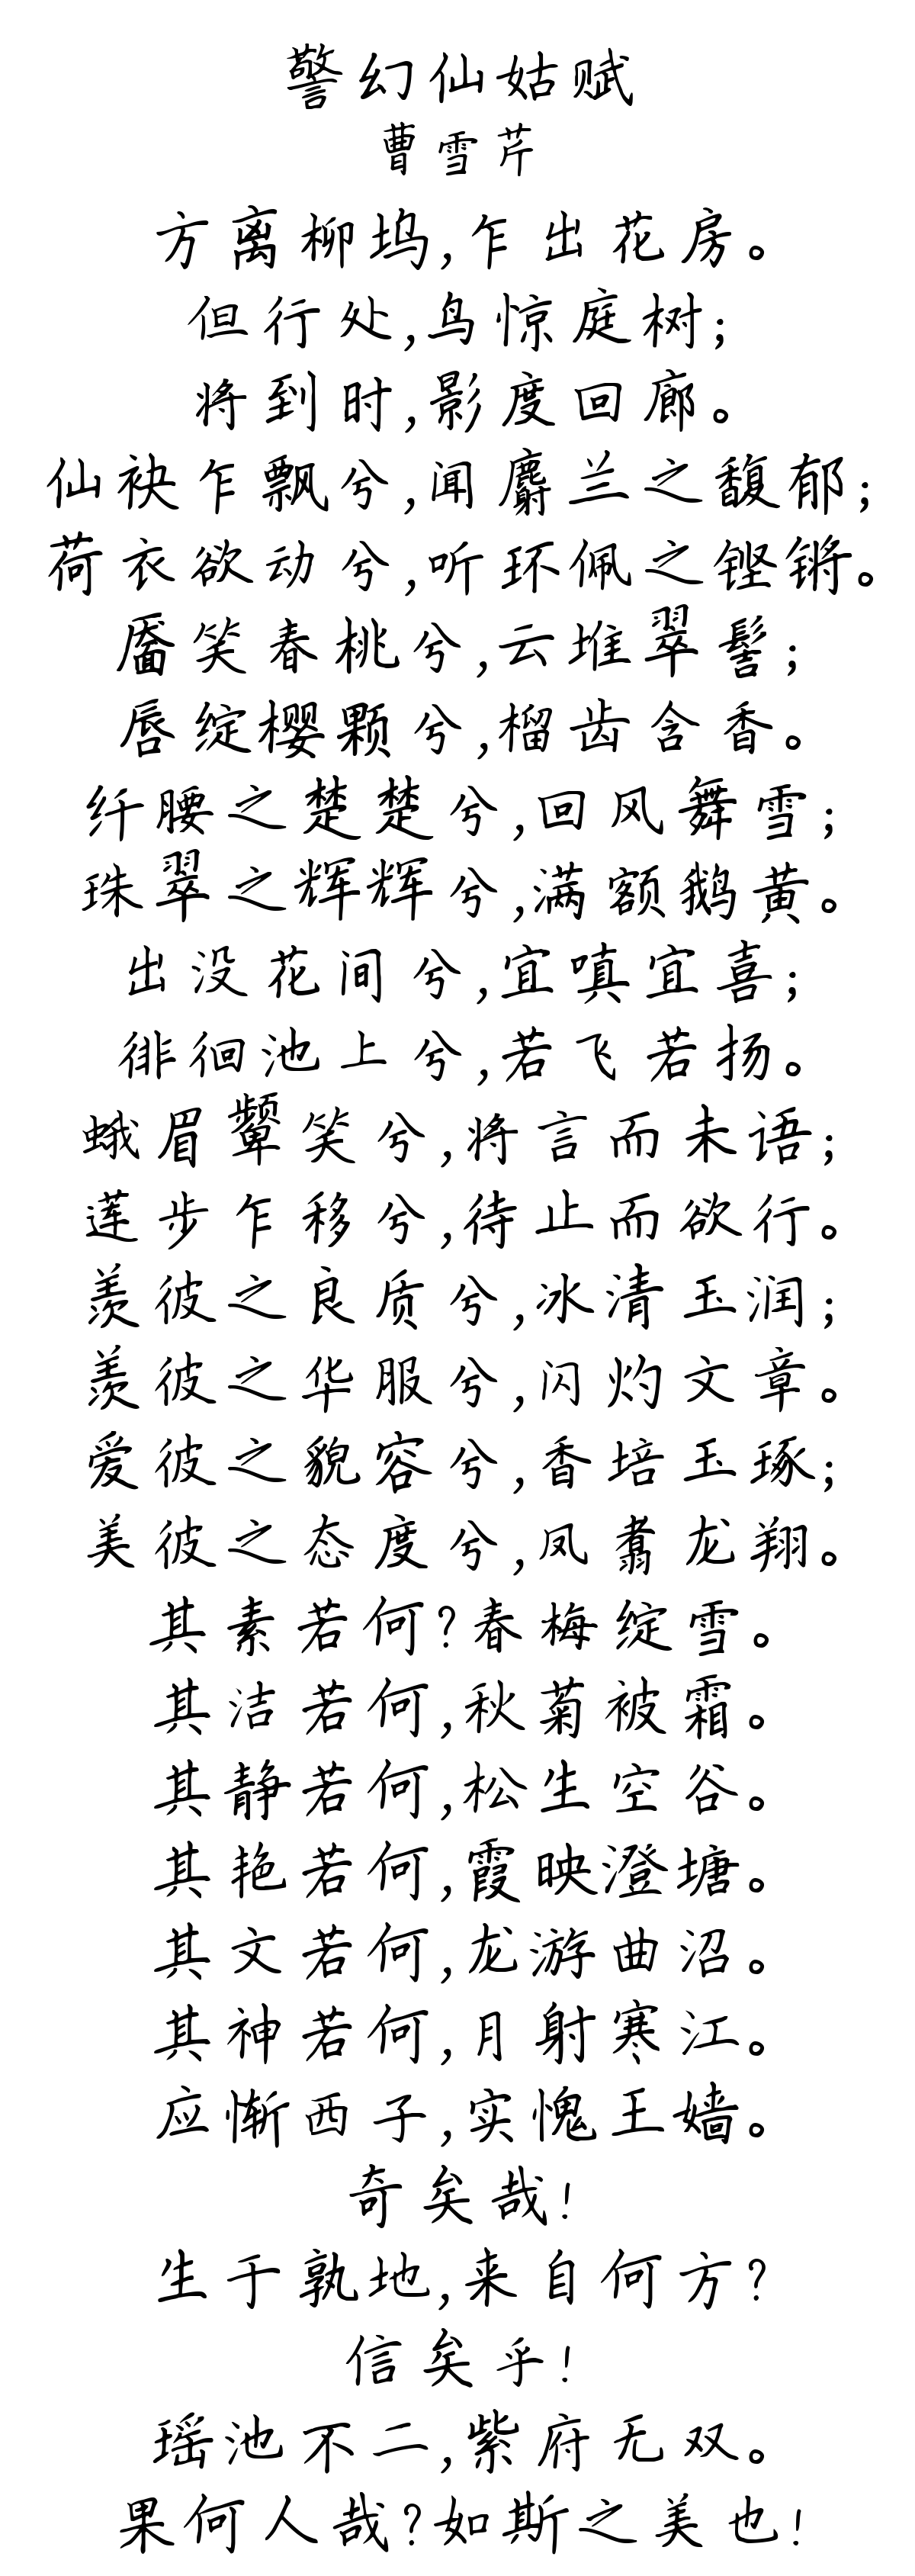 警幻仙姑赋
曹雪芹
方离柳坞,乍出花房。
但行处,鸟惊庭树;
将到时,影度回廊。
仙袂乍飘兮,闻麝兰之馥郁;
荷衣欲动兮,听环佩之铿锵。
靥笑春桃兮,云堆翠髻;
唇绽樱颗兮,榴齿含香。
纤腰之楚楚兮,回风舞雪;
珠翠之辉辉兮,满额鹅黄。
出没花间兮,宜嗔宜喜;
徘徊池上兮,若飞若扬。
蛾眉颦笑兮,将言而未语;
莲步乍移兮,待止而欲行。
羡彼之良质兮,冰清玉润;
羡彼之华服兮,闪灼文章。
爱彼之貌容兮,香培玉琢;
美彼之态度兮,凤翥龙翔。
其素若何?春梅绽雪。
其洁若何,秋菊被霜。
其静若何,松生空谷。
其艳若何,霞映澄塘。
其文若何,龙游曲沼。
其神若何,月射寒江。
应惭西子,实愧王嫱。
奇矣哉!
生于孰地,来自何方?
信矣乎!
瑶池不二,紫府无双。
果何人哉?如斯之美也!